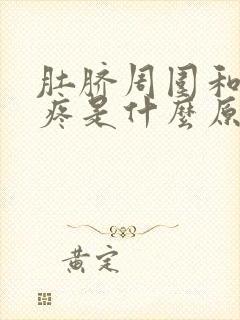 肚脐周围和
疼是什麼原
黄定